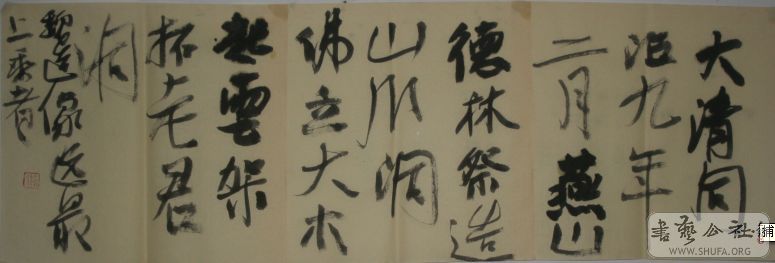 大清同
治九年
二月燕山
德林祭造
山川洞
佛立大木
起雲架
拓老君
洞
魏造像选最
上乘者
書藝公社
WWW.SHUFA.ORG